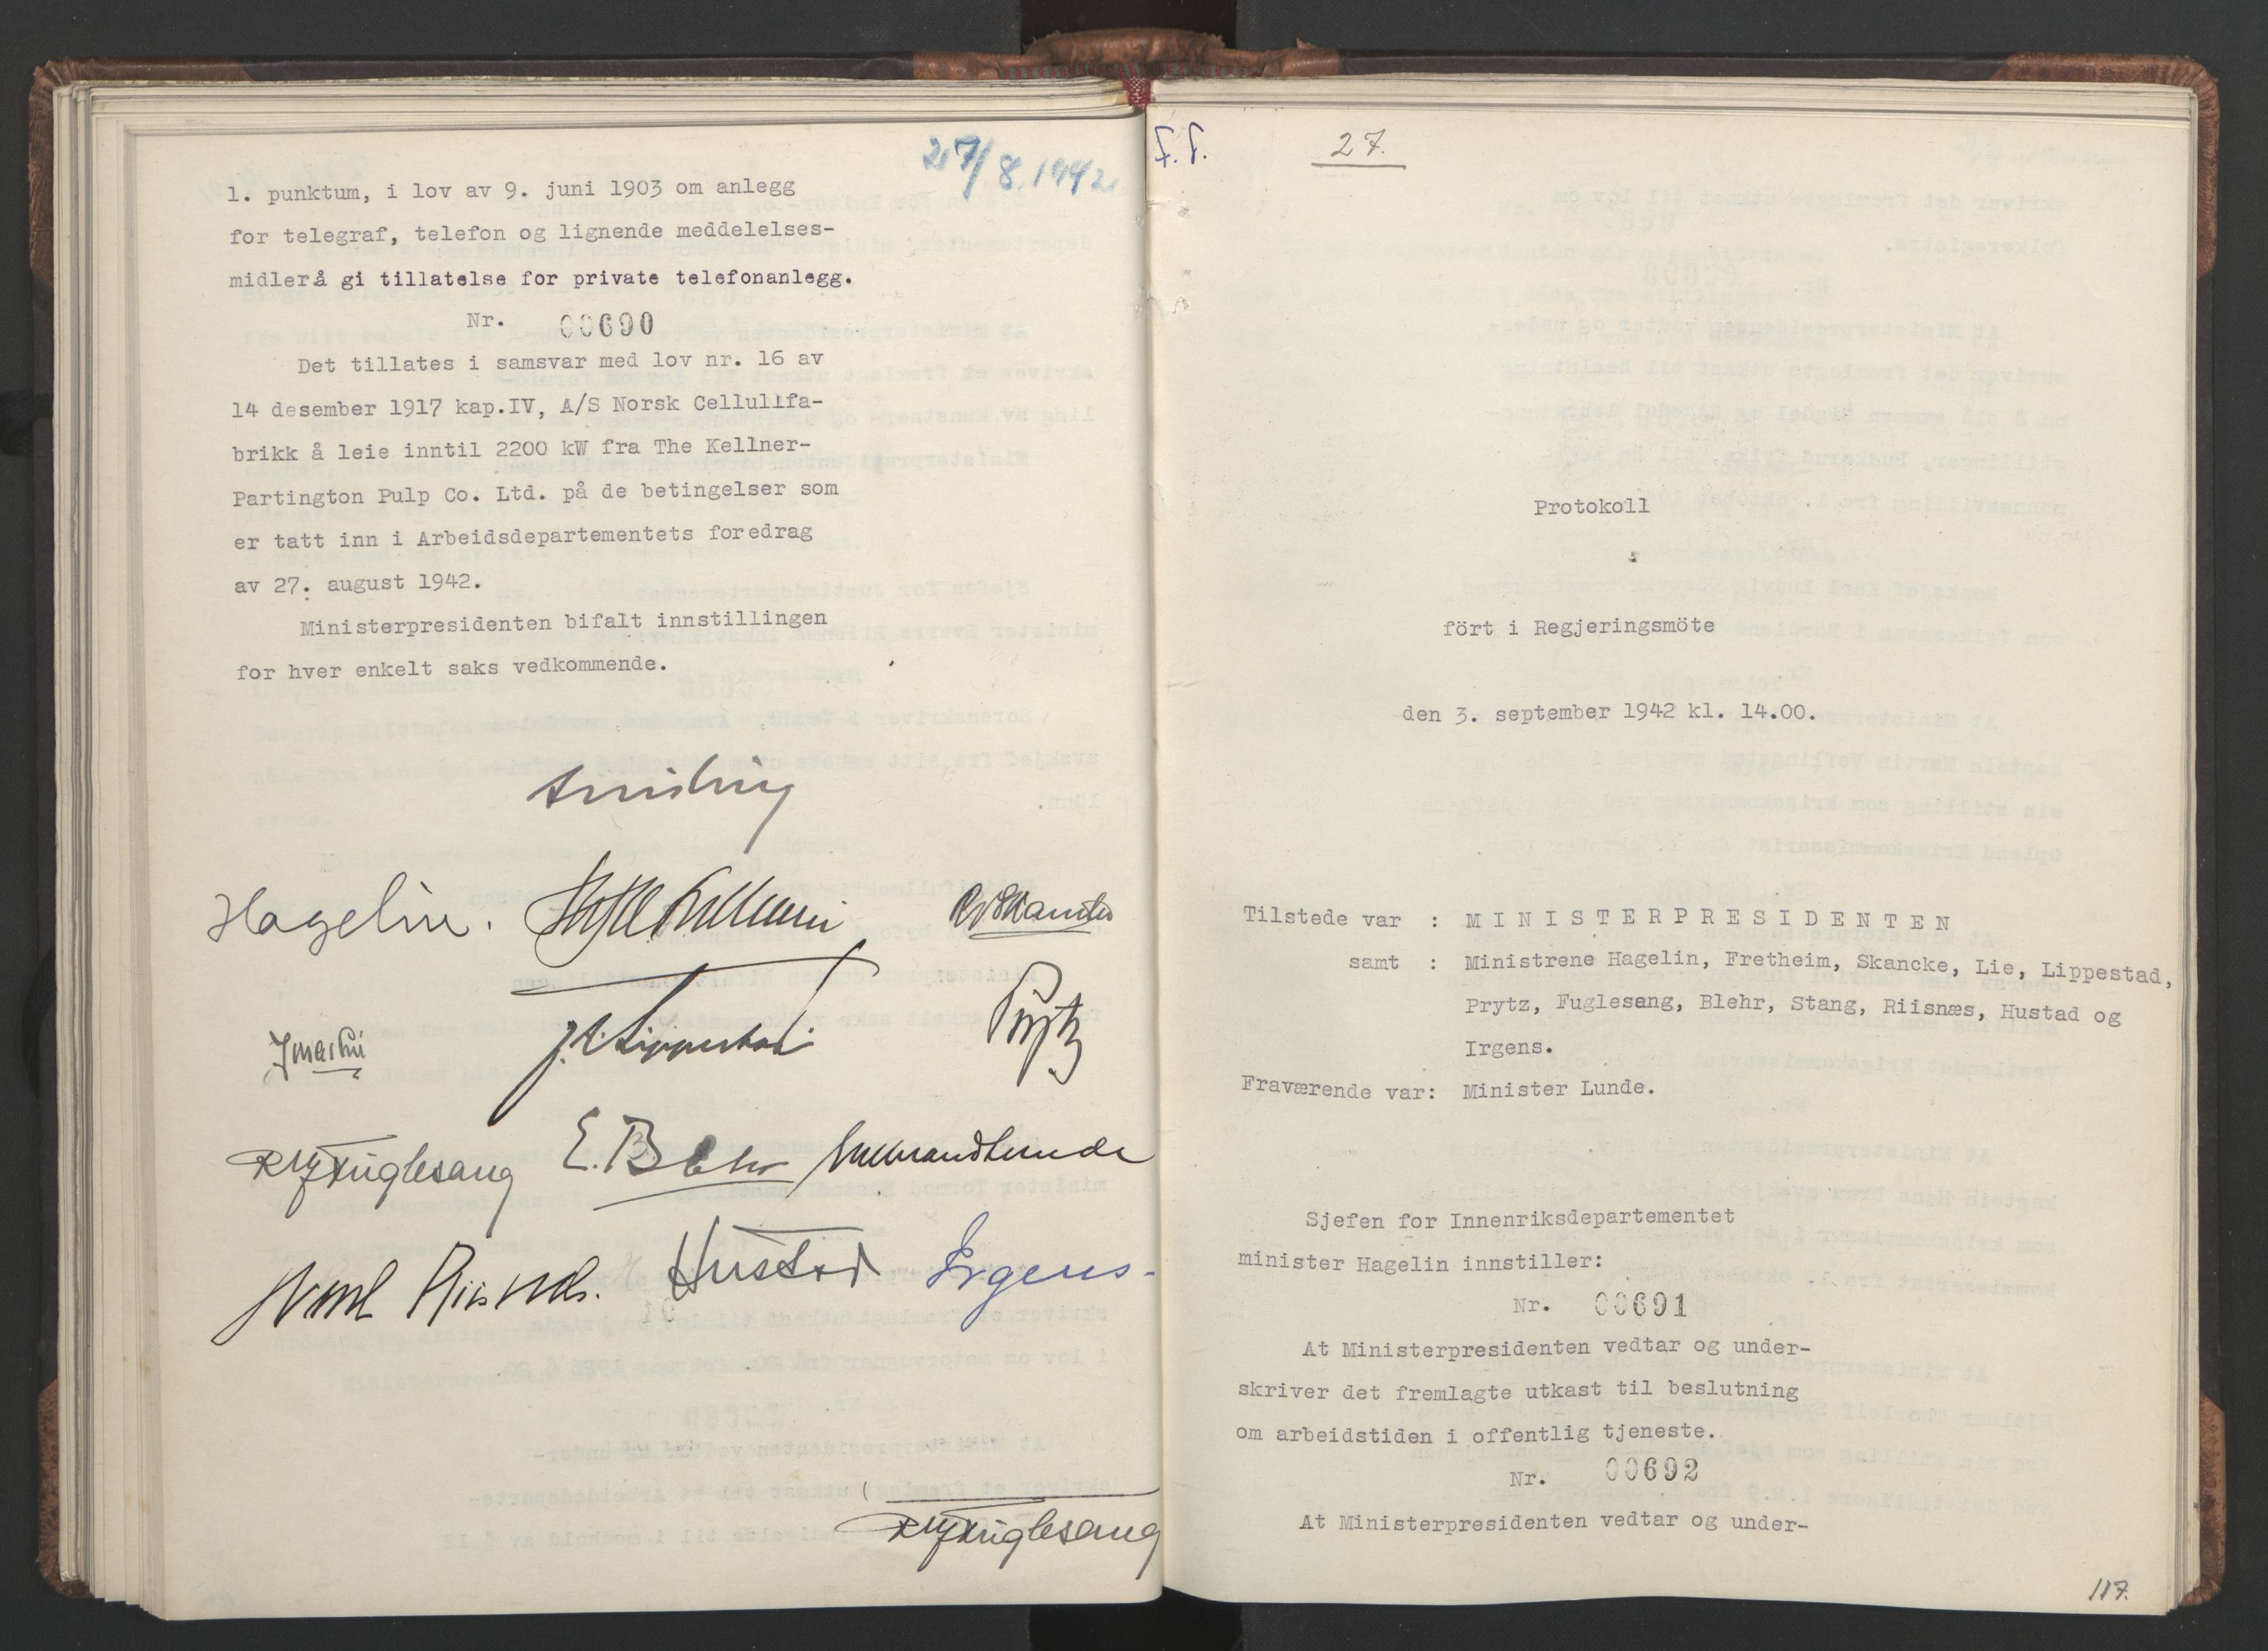 27/8.1942
1. punktum, i lov av 9. juni 1903 om anlegg
for telegraf, telefon og lignende meddelelses-
midlerå gi tillatelse for private telefonanlegg.
Nr. 00690
Det tillates i samsvar med lov nr. 16 av
14 desember 1917 kap.IV, A/S Norsk Cellulifa-
brikk å leie inntil 2200 kW fra The Kellner-
Partington Pulp Co. Ltd. på de betingelser som
er tatt inn i Arbeidsdepartementets foredrag
av 27. august 1942.
Ministerpresidenten bifalt innstillingen
for hver enkelt saks vedkommende.
Hagelin.
RSkancke
J. Lippestad
Prytz
Fuglesang
E. Blehr
Lunde
Riisnæs.
Hustad
Irgens.
Fuglesang
27.
Protokoll
fört i Regjeringsmöte
den 3. september 1942 kl. 14.00.
Tilstede var : MINISTERPRESIDENTEN
samt : Ministrene Hagelin, Fretheim, Skancke, Lie, Lippestad,
Prytz, Fuglesang, Blehr, Stang, Riisnæs, Hustad og
Irgens.
Fraværende var: Minister Lunde.
Sjefen for Innenriksdepartementet
minister Hagelin innstiller:
Nr. 00691
At Ministerpresidenten vedtar og under-
skriver det fremlagte utkast til beslutning
om arbeidstiden i offentlig tjeneste.
Nr. 00692
At Ministerpresidenten vedtar og under-
117.